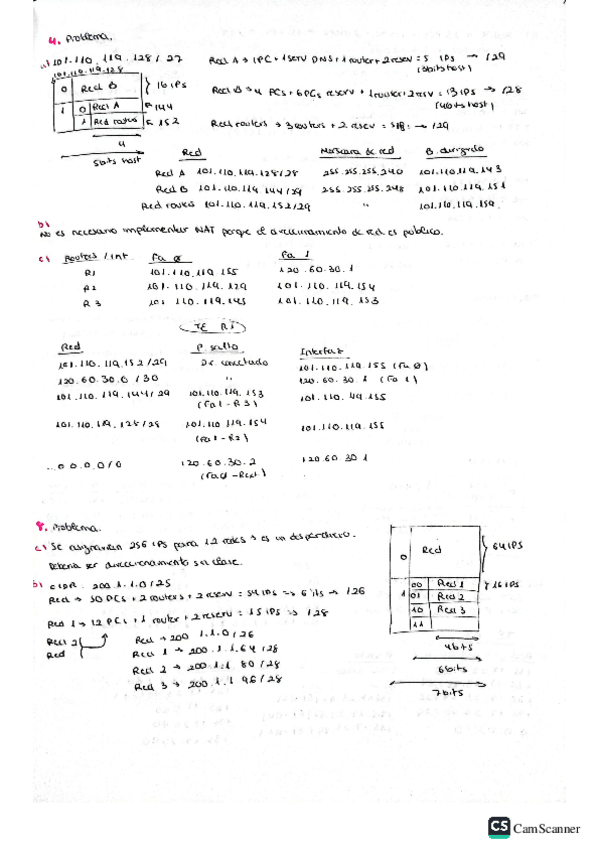 4. Problema.
a) 101.110.119.128/27
Red A → 1PC + 1 serv DNS + 1 router + 2 reserv = 5 IPs → /29
101.110.119.128
(3bits host)
0 Red B } 16 IPs
Red B → 4 PCs + 6 PCs reserv + 1 router + 2 reserv = 13 IPs → /28
(4bits host)
1 0 Red A ← 144
1 Red routers ← 152
Red routers → 3 routers + 2 reserv = 5 IPs → /29
4
5bits host
Red Máscara de red B. dirigido
Red A 101.110.119.128/28 255.255.255.240 101.110.119.143
Red B 101.110.119.144/29 255.255.255.248 101.110.119.151
Red routers 101.110.119.152/29 " 101.110.119.159
b)
No es necesario implementar NAT porque el direccionamiento de red es público.
c) Routers / int. Fa 0 Fa 1
R1 101.110.119.155 120.60.30.1
R2 101.110.119.129 101.110.119.154
R3 101.110.119.145 101.110.119.153
TE R1
Red P. salto Interfaz
101.110.119.152/29 D. conectado 101.110.119.155 (Fa 0)
120.60.30.0/30 " 120.60.30.1 (Fa 1)
101.110.119.144/29 101.110.119.153 101.110.119.155
(Fa1 - R3)
101.110.119.128/28 101.110.119.154 101.110.119.155
(Fa1 - R2)
0.0.0.0/0 120.60.30.2 120.60.30.1
8. Problema.
c) Se asignarían 256 IPs para 12 redes y es un desperdicio.
Debería ser direccionamiento sin clase.
0 Red } 64 IPS
b) CIDR. 200.1.1.0/25
Red → 50 PCs + 2 routers + 2 reserv = 54 IPs => 6 bits → /26
1 00 Red 1 } 16 IPS
01 Red 2
10 Red 3
11
Red 1 → 12 PCs + 1 router + 2 reserv = 15 IPs => /28
Red 2
Red
Red → 200.1.1.0/26
Red 1 → 200.1.1.64/28
Red 2 → 200.1.1.80/28
Red 3 → 200.1.1.96/28
4bits
6bits
7bits
CS CamScanner